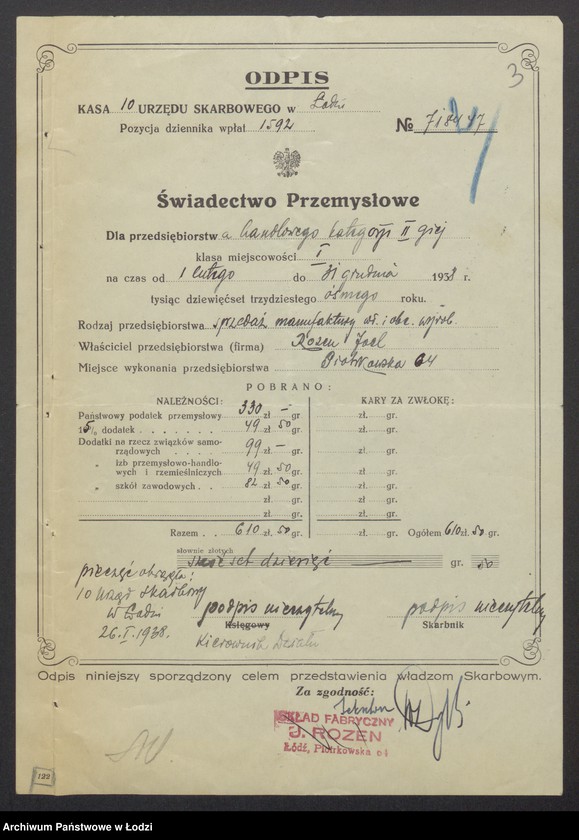 3
ODPIS
KASA 10 URZĘDU SKARBOWEGO w Łodzi
Pozycja dziennika wpłat 1592
№ 718447
Świadectwo Przemysłowe
Dla przedsiębiorstwa handlowego kategorji II giej
klasa miejscowości I
na czas od 1 lutego do 31 grudnia 1938 r.
tysiąc dziewięćset trzydziestego ósmego roku.
Rodzaj przedsiębiorstwa sprzedaż manufaktury wł. i obc. wyrob.
Właściciel przedsiębiorstwa (firma) Rozen Joel
Miejsce wykonania przedsiębiorstwa Piotrkowska 64
POBRANO:
NALEŻNOŚCI: KARY ZA ZWŁOKĘ:
Państwowy podatek przemysłowy 330 zł — gr zł. gr.
15% dodatek 49 zł 50 gr zł. gr.
Dodatki na rzecz związków samo-
rządowych 99 zł. — gr. zł. gr.
„ izb przemysłowo-handlo-
wych i rzemieślniczych 49 zł. 50 gr. zł. gr.
„ szkół zawodowych 82 zł. 50 gr. zł. gr.
zł. gr. zł. gr.
zł. gr. zł. gr.
Razem 610 zł. 50 gr. zł. gr. Ogółem 610 zł. 50 gr.
słownie złotych
sześćset dziesięć — gr. 50
pieczęć okrągła:
10 Urząd Skarbowy
w Łodzi
26.I.1938.
podpis nieczytelny
Księgowy
Kierownik Działu
podpis nieczytelny
Skarbnik
Odpis niniejszy sporządzony celem przedstawienia władzom Skarbowym.
Za zgodność:
SKŁAD FABRYCZNY
J. ROZEN
Łódź, Piotrkowska 64
122
Archiwum Państwowe w Łodzi